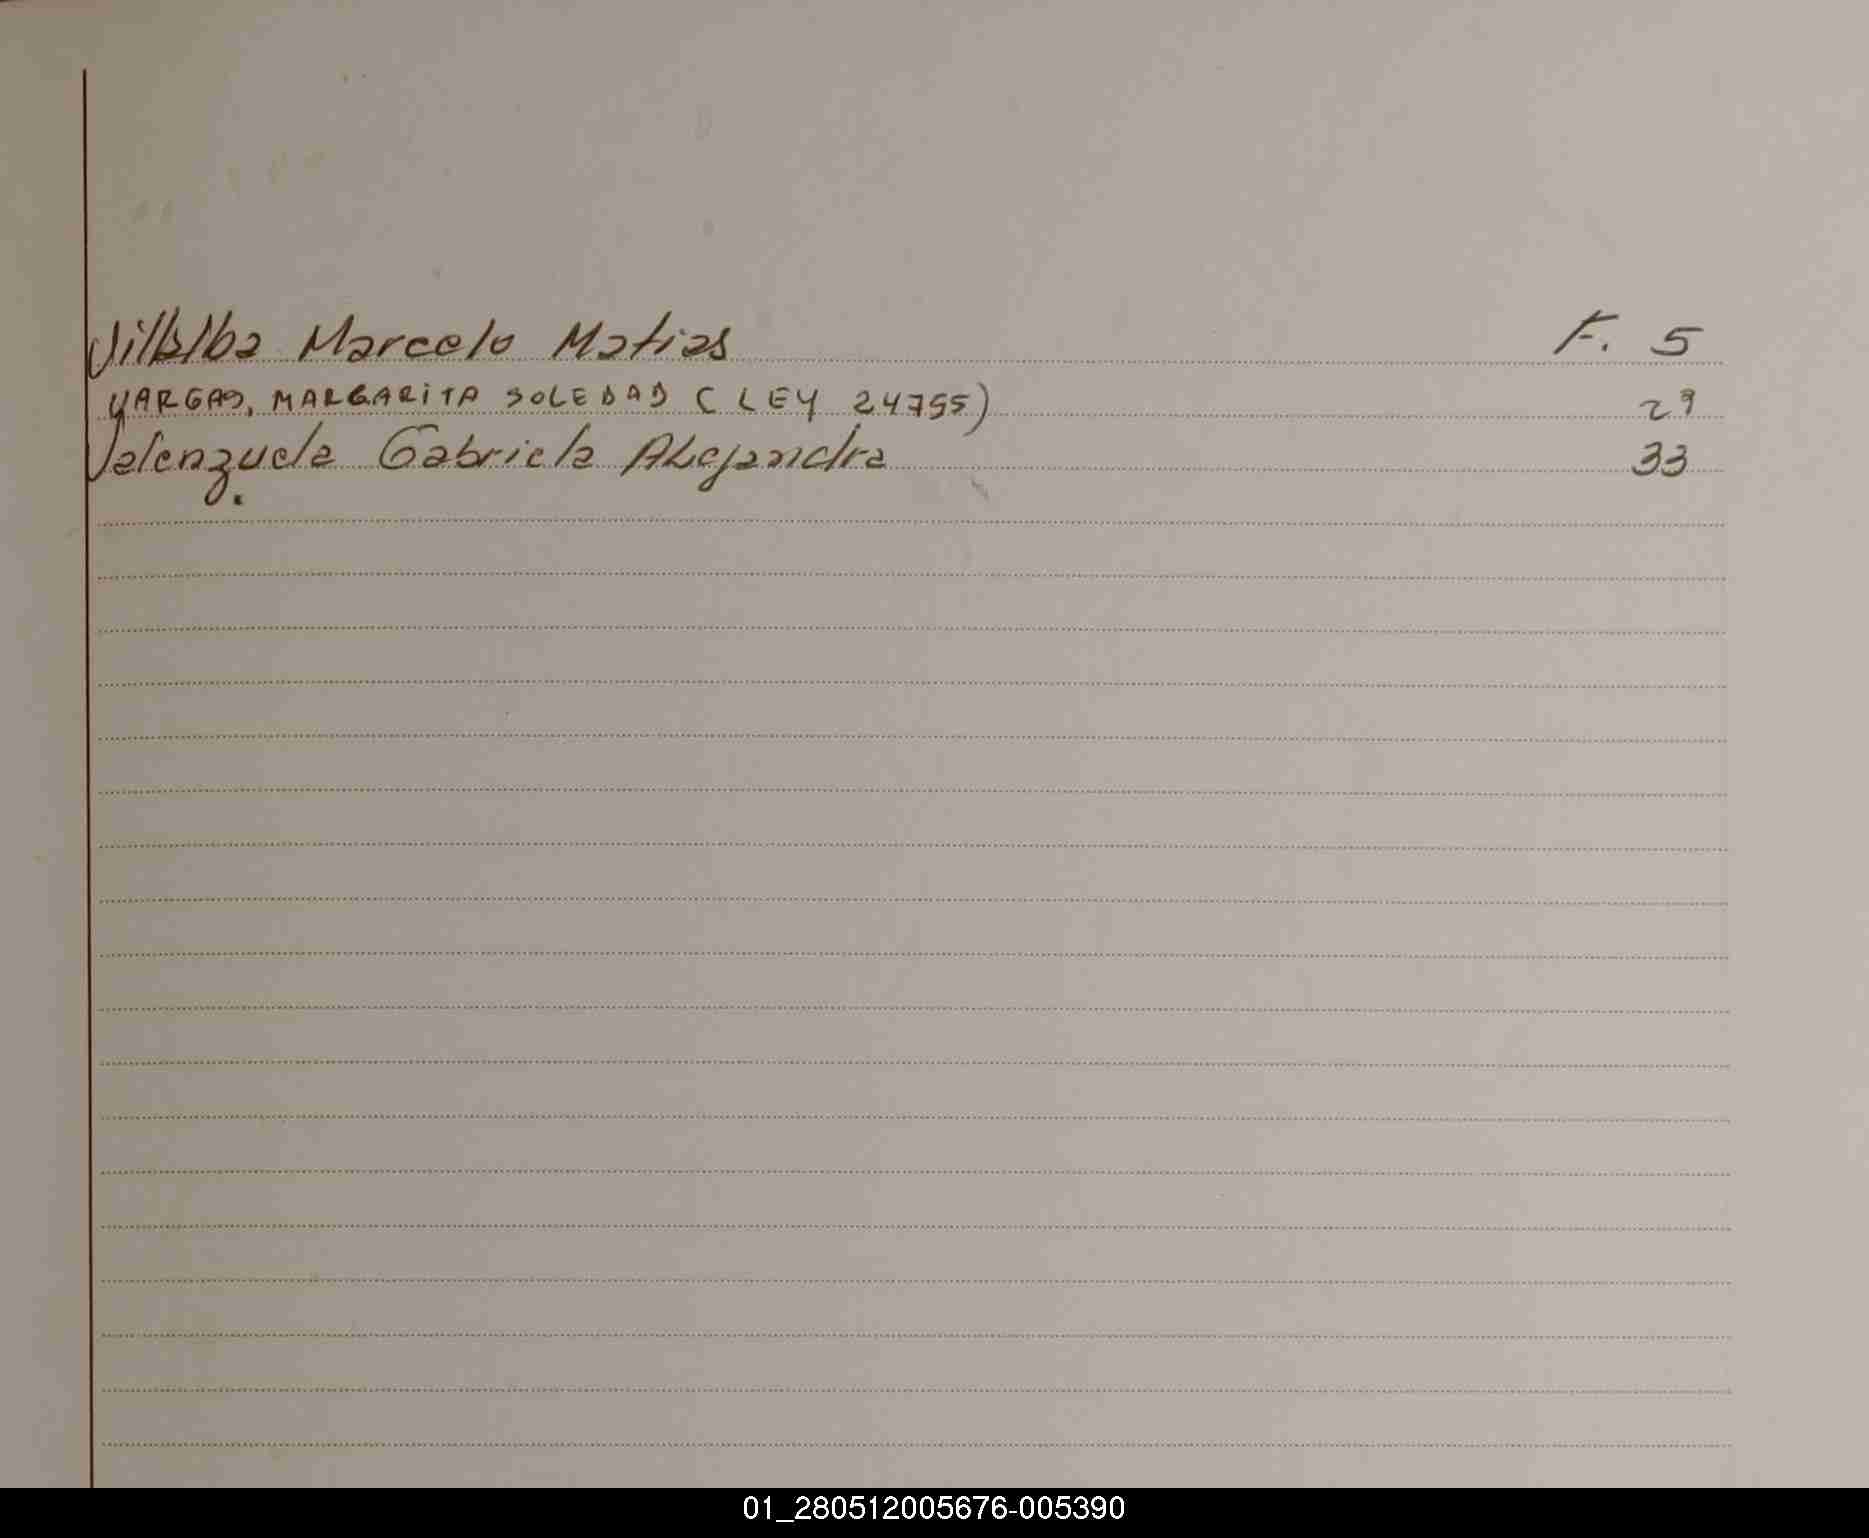 Villalba Marcelo Matias F. 5
VARGAS, MARGARITA SOLEDAD (LEY 24755) 29
Valenzuela Gabriela Alejandra 33
01_280512005676-005390